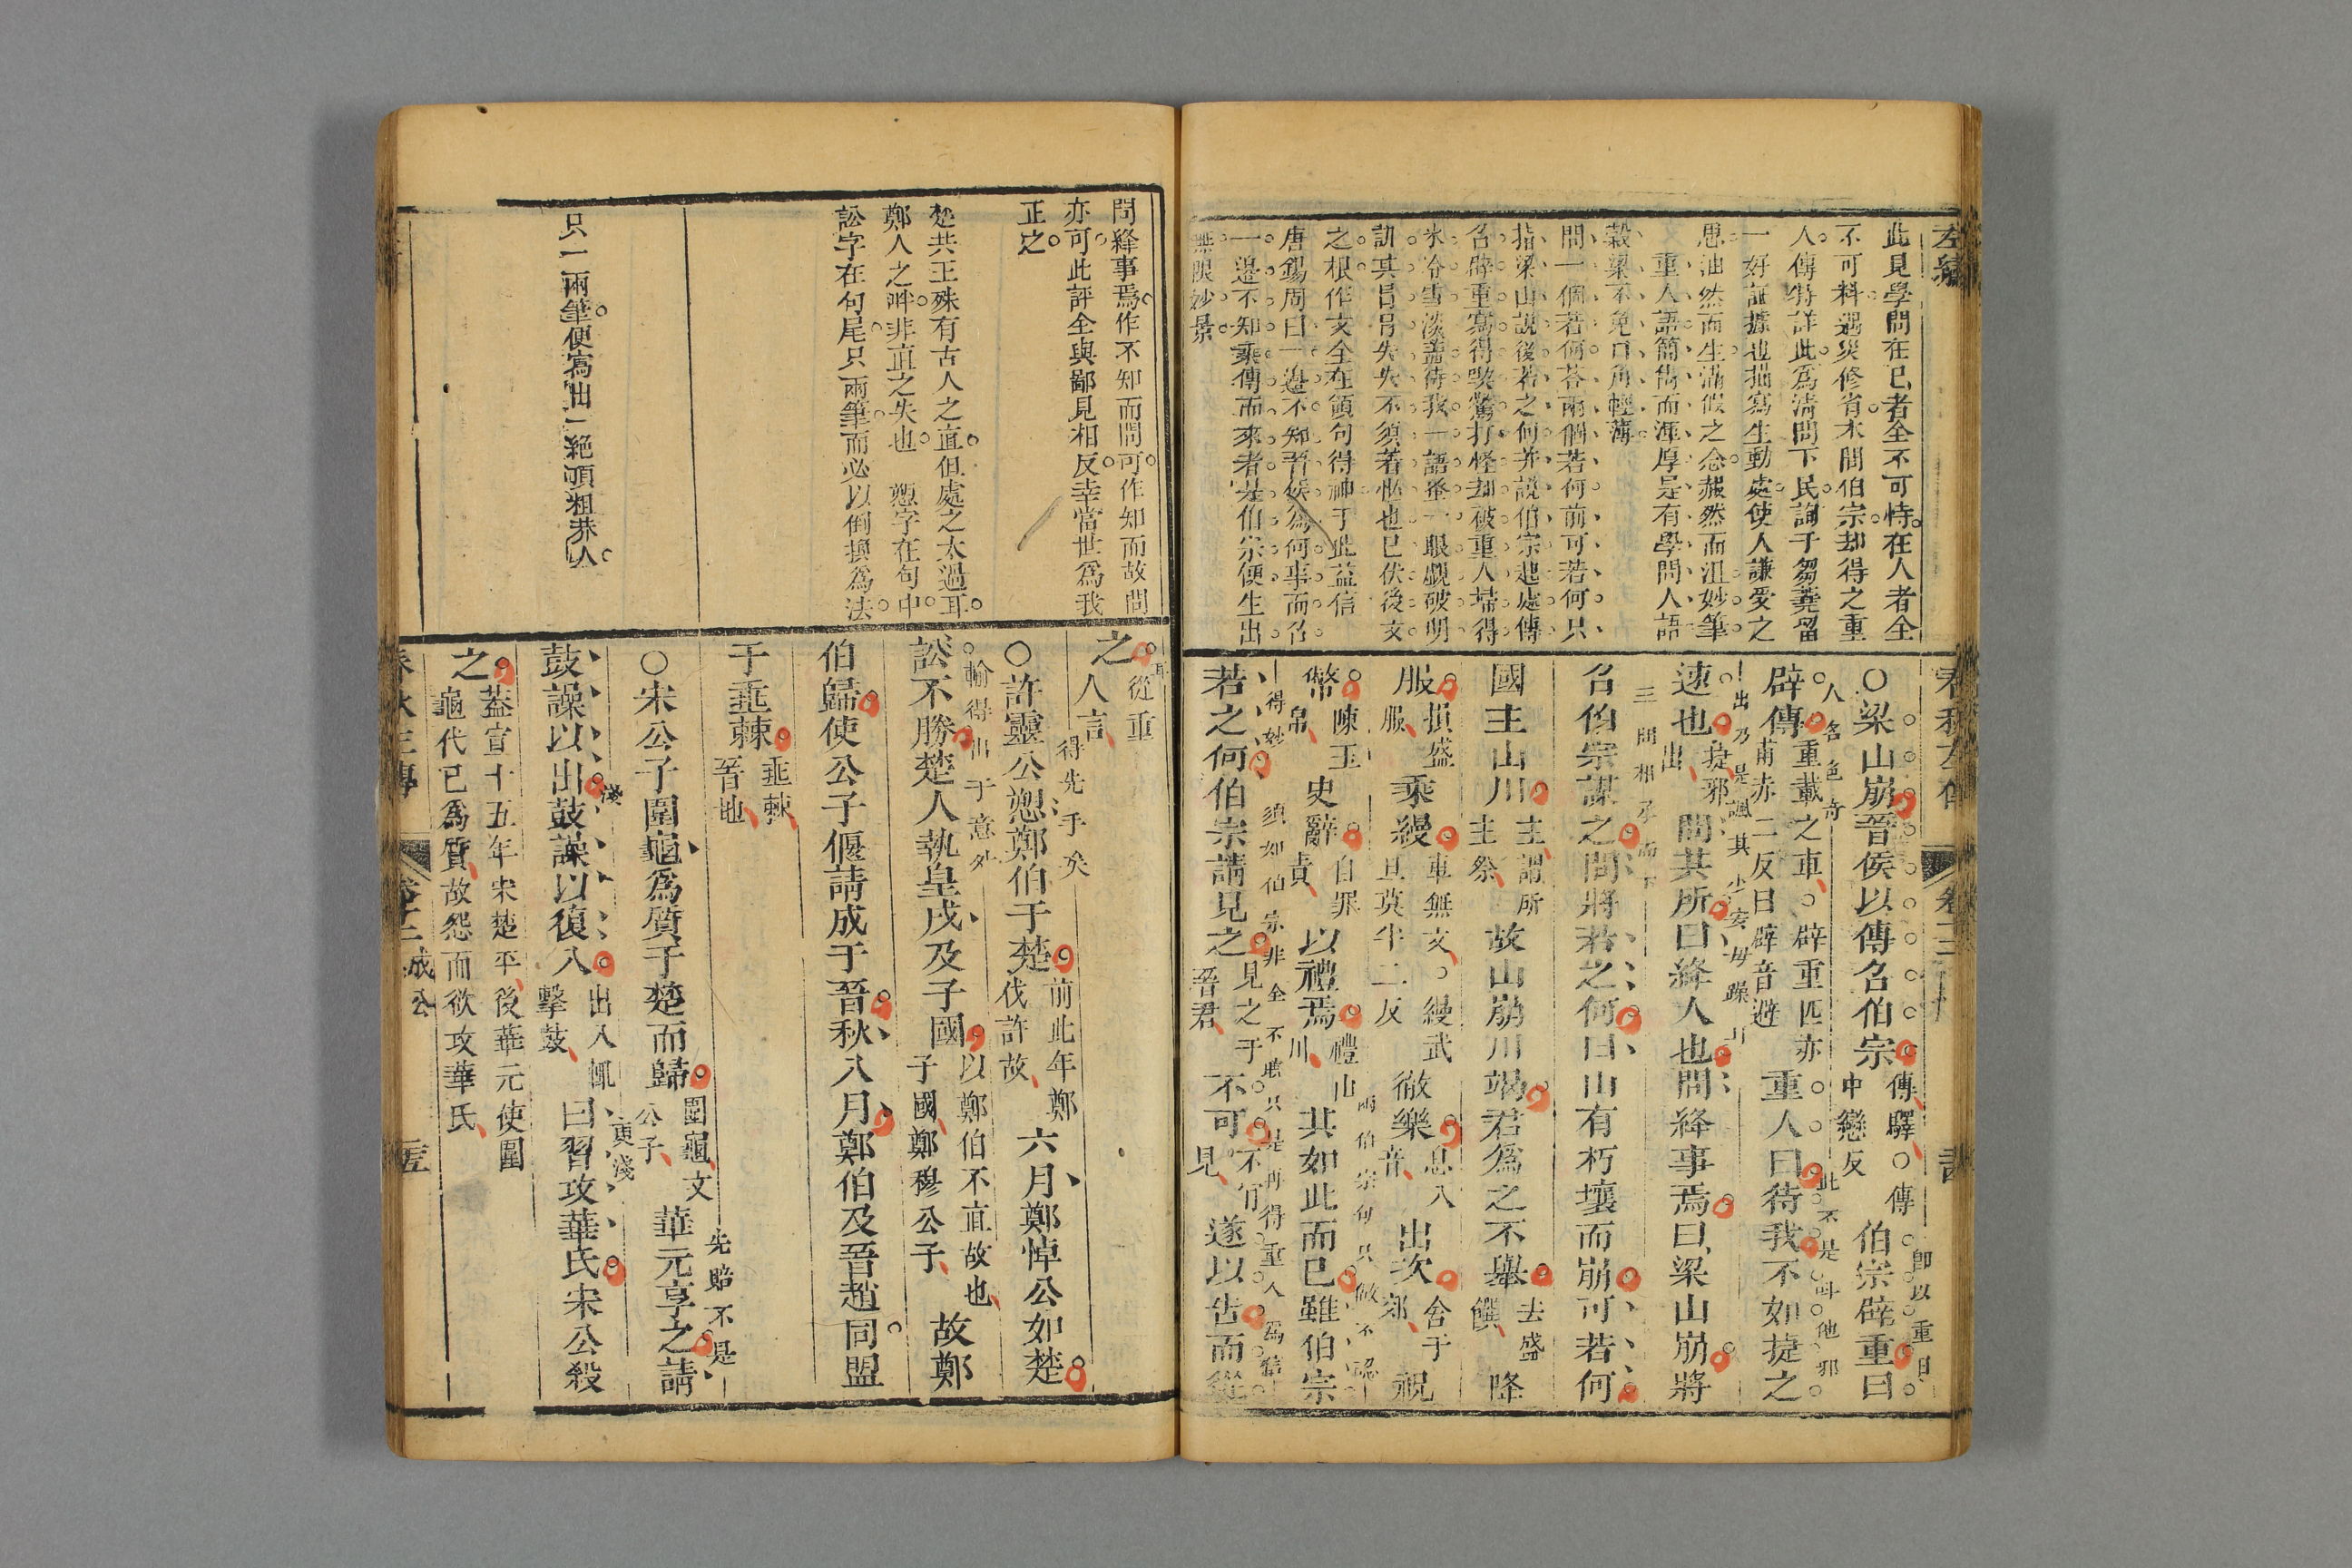 左繡
此見學問在已者全不可恃在人者全
不可料遇災修省本問伯宗却得之重
人傳特詳此爲淸問下民詢于芻蕘留
一好証據也描寫生動處使人謙受之
思油然而生滿假之念赧然而沮妙筆
重人語簡雋而渾厚是有學問人語
穀梁不免口角輕薄
問一個若何荅兩個若何前可若何只
指梁山說後若之何并說伯宗起處傳
召辟重寫得喫驚打怪却被重人埽得
氷冷雪淡蓋待我一語早一眼覷破明
訕其召召失失不須着忙也已伏後文
之根作文全在領句得神于此益信
唐錫周曰一邊不知晉侯爲何事而召
一邊不知乘傳而來者是伯宗便生出
無限妙景
春秋左傳 卷十二 書
○梁山崩晉侯以傳召伯宗傳驛○傳中戀反伯宗辟重曰
卽以重日
人名色奇
辟傳重載之車○辟重匹亦甫赤二反曰辟音避重人曰待我不如捷之
此不是叫他邪
出乃是諷其少安毋躁
速也捷邪出問其所曰絳人也問絳事焉曰梁山崩將
三問相承而下
召伯宗謀之問將若之何曰山有朽壤而崩可若何
國主山川主謂所主祭故山崩川竭君爲之不舉去盛饌降
服損盛服乘縵車無文○縵武旦莫半二反徹樂息八音出次舍于郊祝
幣陳玉帛史辭自罪責以禮焉禮山川其如此而已雖伯宗
兩伯宗句只做不認
得妙
須如伯宗非全不聴只是再得重人爲信
若之何伯宗請見之見之于晉君不可不肯見遂以告而從
問絳事焉作不知而問可作知而故問
亦可此評全與鄙見相反幸當世爲我
正之
楚共王殊有古人之直但處之太過耳
鄭人之衅非直之失也 愬字在句中
訟字在句尾只兩筆而必以倒換爲法
只一兩筆便寫出一絶頂粗莽人
之從重人言
得先手矣
○許靈公愬鄭伯于楚前此年鄭伐許故六月鄭悼公如楚
輸得出于意外
訟不勝楚人執皇戌及子國以鄭伯不直故也子國鄭穆公子故鄭
伯歸使公子偃請成于晉秋八月鄭伯及晉趙同盟
于垂棘垂棘晉地
○宋公子圍龜爲質于楚而歸圍龜文公子華元享之請
先賠不是
淺
更淺
鼓譟以出鼓譟以復入出入輒擊鼓曰習攻華氏宋公殺
之蓋宣十五年宋楚平後華元使圍龜代已爲質故怨而欲攻華氏
春秋左傳 卷十二 成公